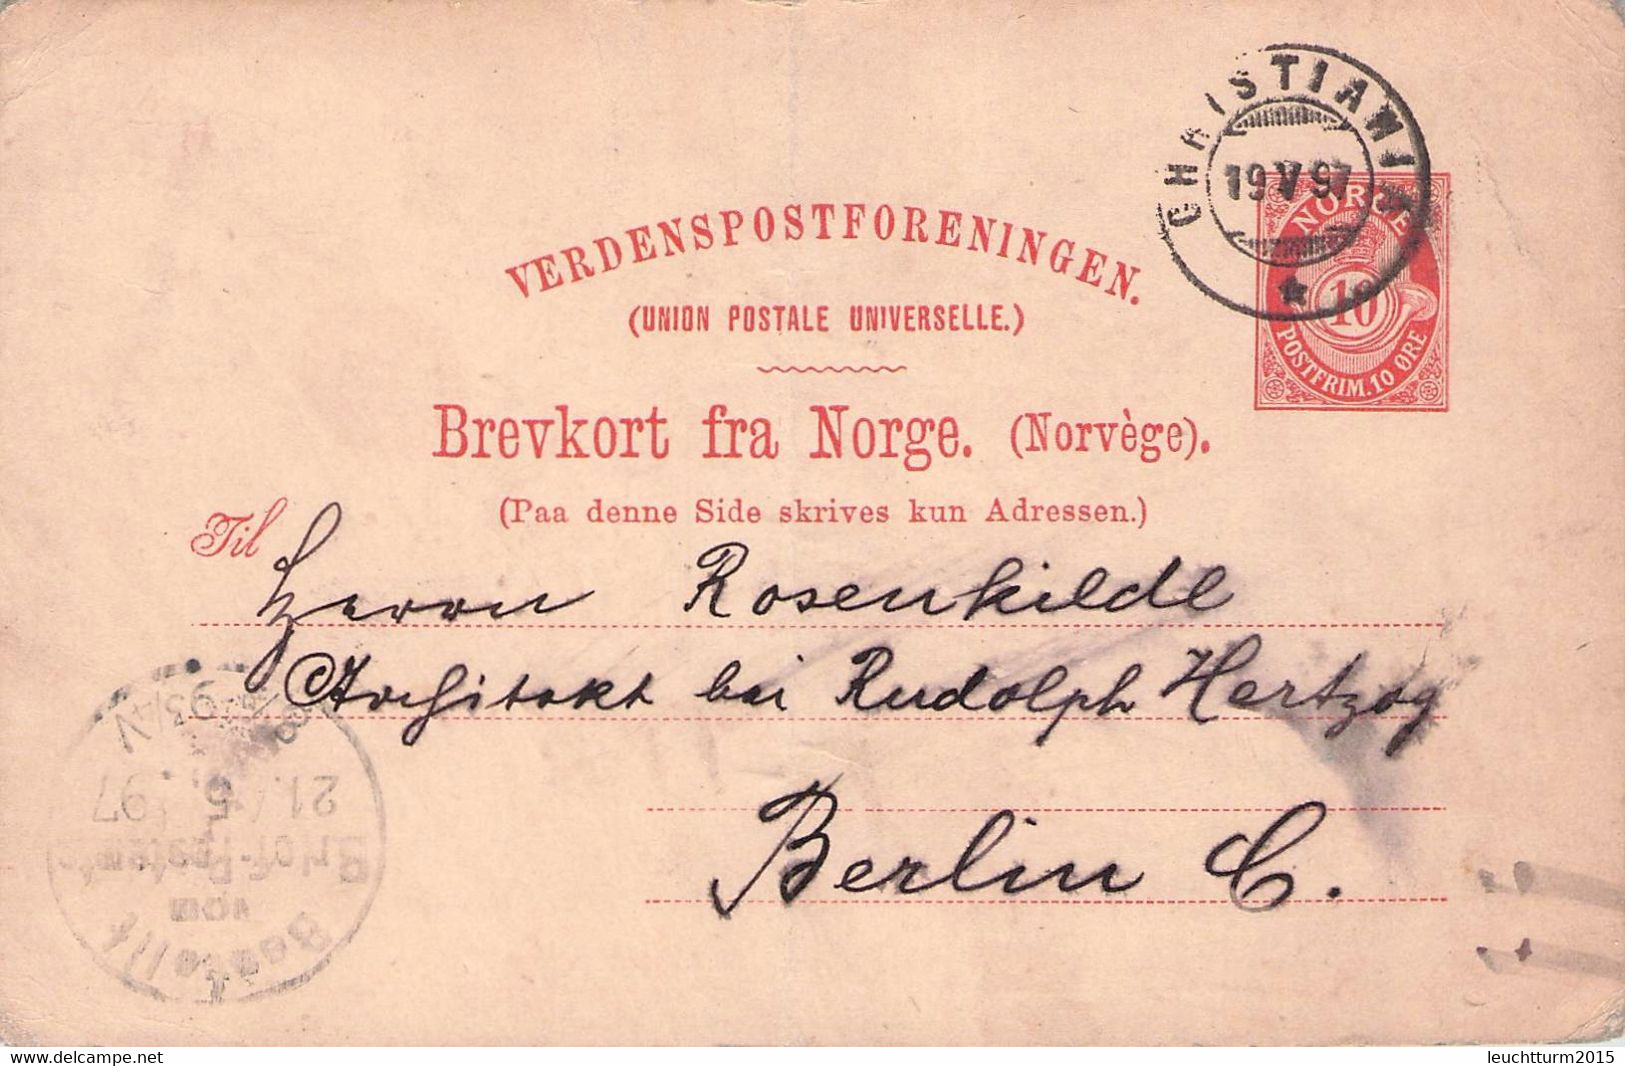 CHRISTIANIA
19 V 97
NORGE
10
POSTFRIM. 10 ØRE
VERDENSPOSTFORENINGEN.
(UNION POSTALE UNIVERSELLE.)
Brevkort fra Norge. (Norvège).
(Paa denne Side skrives kun Adressen.)
Til
Herrn Rosenkilde
Architekt bei Rudolph Hertzog
Berlin C.
Bestellt
vom
Brief-Postamte
21. 5. 97
leuchtturm2015